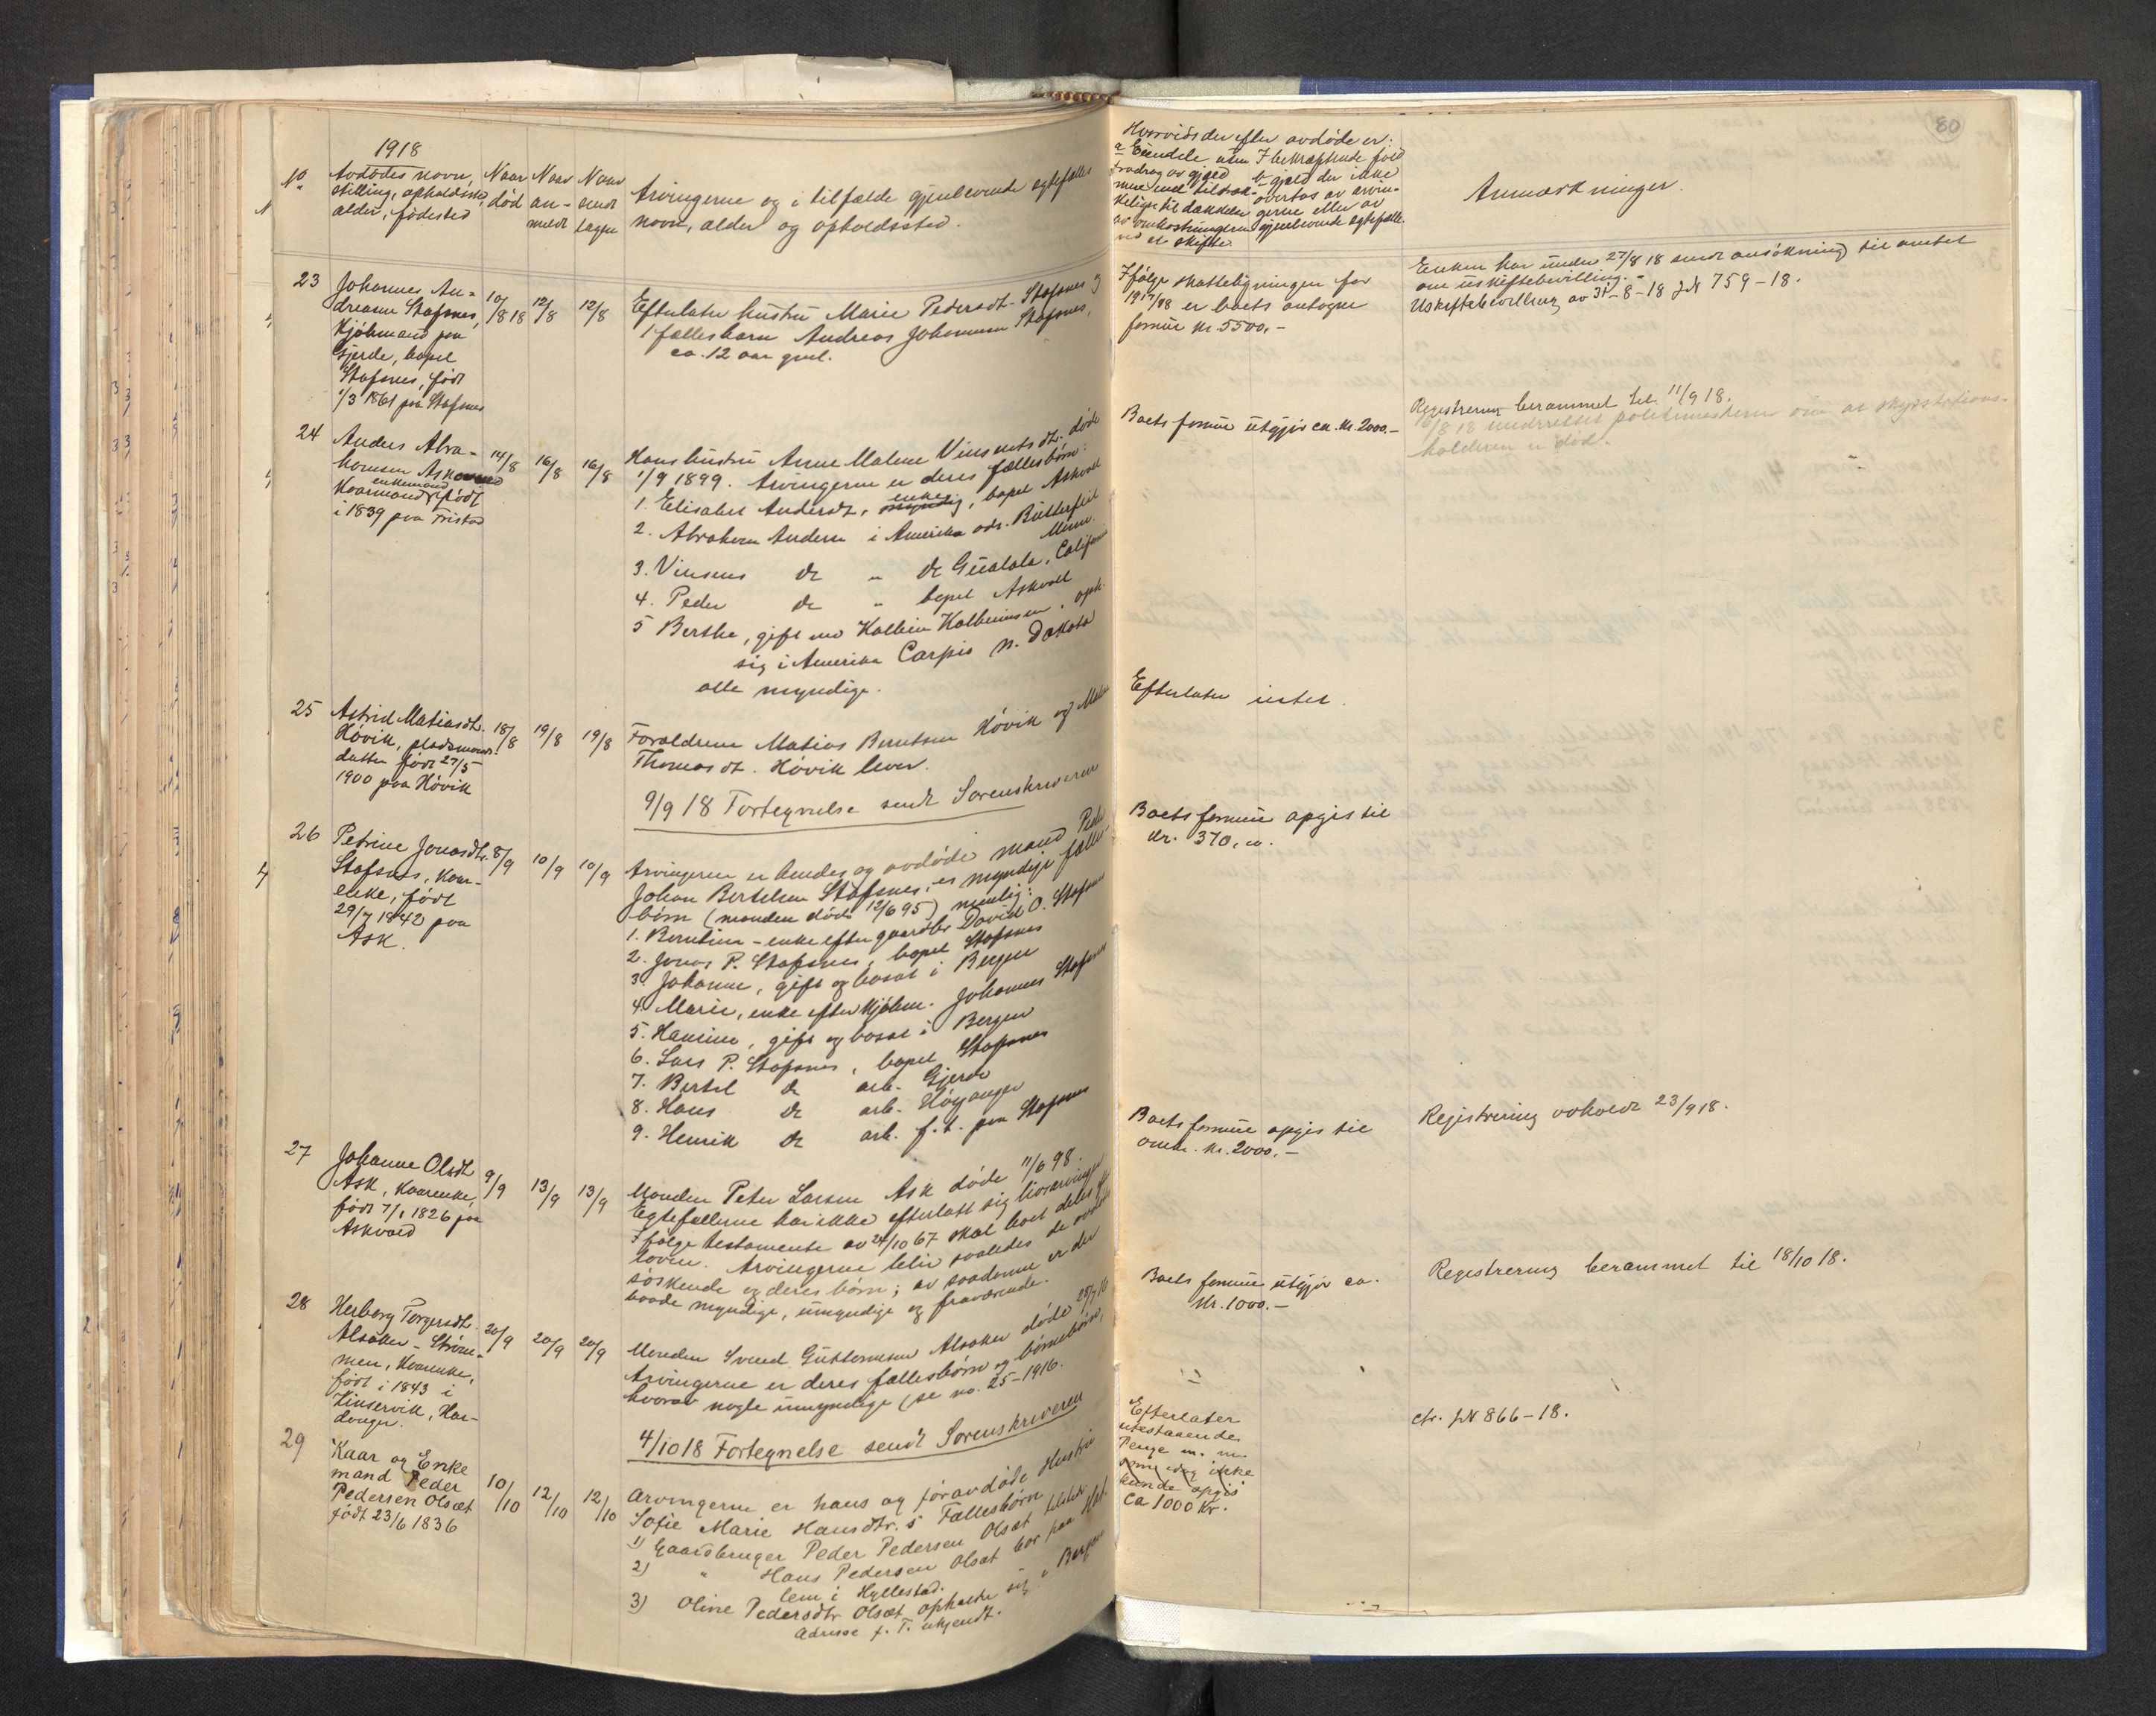 1918
No
Avdødes navn,
stilling, opholdssted,
alder, fødested
Naar
død
Naar
an-
meldt
Naar
sendt
lagfør
Arvingerne og i tilfælde gjenlevende egtefælles
navn, alder og opholdssted.
23
Johannes An-
dreasen Stafsnes,
Kjøbmand paa
Gjerde, bopæl
Stafsnes, født
1/3 1861 paa Stafsnes
10/8 18
12/8
12/8
Efterlater hustru Marie Pedersdt. Stafsnes og
1 fællesbarn Andreas Johannesen Stafsnes,
ca. 12 aar gml.
24
Anders Abra-
hamsen Askvold
enkemand
Kaarmand født
i 1839 paa Fristad
14/8
16/8
16/8
Hans hustru Anne Malene Vinsentsdt. døde
1/9 1899. Arvingerne er deres fællesbørn:
1. Elisabet Andersdt, enke, bopæl Askvoll
2. Abraham Andersen i Amerika adr. Butterfeil
Minn.
3. Vinsens do " do Gualala, California
4. Peder do " bopæl Askvoll
5 Berthe, gift me Kolbein Kolbeinsen, oph.
sig i Amerika Carpio N. Dakota
alle myndige.
25
Astrid Matiasdt.
Høvik, pladsmands-
datter født 27/5
1900 paa Høvik
18/8
19/8
19/8
Forældrene Matias Berntsen Høvik og
Thomasdt. Høvik lever.
9/9 18 Fortegnelse sendt Sorenskriveren
26
Petrine Jonasdtr.
Stafsnes, Kaar-
enke, født
29/7 1842 paa
Ask.
8/9
10/9
10/9
Arvingerne er hendes og avdøde mand Peder
Johan Bertelsen Stafsnes, es myndige fælles-
børn (manden døde 12/6 95) nemlig:
1. Berntine - enke efter gaardbr. David O. Stafsnes
2. Jonas P. Stafsnes, bopæl Stafsnes
3. Johanne, gift og bosat i Bergen
4. Marie, enke efter kjøbm. Johannes Stafsnes
5. Hansine, gift og bosat i Bergen
6. Lars P. Stafsnes, bopæl Stafsnes
7. Bertel do arb. Gjerde
8. Hans do arb. Høyanger
9. Henrik do arb. f.t. paa Stafsnes
27
Johanne Olsdt
Ask, Kaarenke,
født 7/1 1826 paa
Askvold
9/9
13/9
13/9
Manden Peter Larsen Ask døde 11/6 98.
Egtefællerne har ikke efterlatt sig livsarvinger
Ifølge testamente av 24/10 67 skal boet deles ef
loven. Arvingerne bliv saaledes de avdødes
søskende og deres børn; av saadanne er der
baade myndige, umyndige og fraværende.
28
Herborg Torgersdt.
Alsaker - Strøm-
men, Kaarenke,
født i 1843 i
Kinservik, Har-
danger.
20/9
20/9
20/9
Manden Svend Guttormsen Alsaker døde 25/7 10
Arvingerne er deres fællesbørn og børnebørn,
hvorav nogle umyndige (se no. 25-1916.
4/10 18 Fortegnelse sendt Sorenskriveren
29
Kaar og Enke
mand Peder
Pedersen Olset
født 23/6 1836
10/10
12/10
12/10
Arvingerne er hans og foravdøde Hustru
Sofie Marie Hansdtr. s Fællesbørn
1) Gaardbruger Peder Pedersen Olset
2) " Hans Pedersen Olset bor paa
lem i Hyllestad.
3) Oline Pedersdtr Olset opholde sig i Bergen
Adresse f. T. ukjendt.
80
Hvorvidt der efter avdøde er:
a Eiendele uten
fradrag av gjæld
mere end tilstræk-
kelige til dækkelse
av omkostningerne
ved et skifte
I bekræftende fald
b gjæld der ikke
overtas av arvin-
gerne eller av
gjenlevende egtefælle.
Anmærkninger.
Ifølge skatteligningen for
1917/18 er boets antagne
formue kr. 5500,-
Enken har under 27/8 18 sendt ansøkning til amtet
om uskiftebevilling.-
Uskiftebevilling av 31-8-18 JN 759-18.
Boets formue utgjør ca. kr. 2000.-
Registrering berammet til 11/9 18.
18 underrettet politimesteren om at skysstations-
holderen er død.
Efterlater intet.
Boets formue opgis til
kr. 370,00.
Boets formue opgis til
omtr. kr. 2000.-
Registrering avholdt 23/9 18.
Boets formue utgjør ca.
kr. 1000.-
Registrering berammet til 18/10 18.
Efterlater
utestaaende
Penge m. m.
som idag ikke
kunde opgis
Ca 1000 Kr.
cfr. JN 866-18.